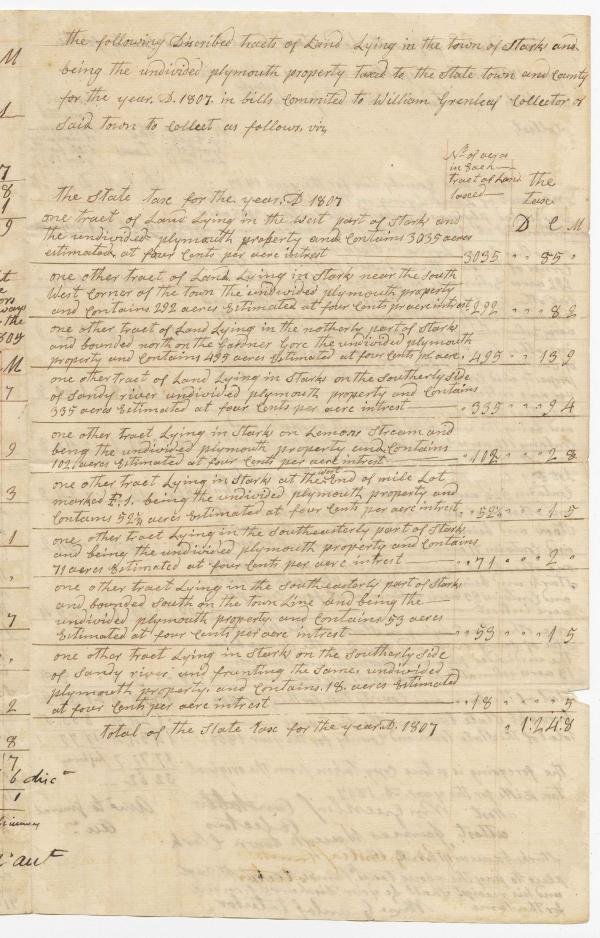 the following Discribed tracts of Land Lying in the town of Stark and
being the undivided plymouth property Taxed to the State town and County
for the year, D. 1807. in bills Commited to William Grenleaf Collector of
Said town to Collect as follows, viz
No of acrs
in Each
tract of Land
taxed
the
taxe
The State taxe for the year, D 1807
D C M
one tract of Land Lying in the West part of Stark and
the undivided plymouth property and Contains 3035 acres
estimated, at four Cents per acre intrest 3035 " " 85 "
one other tract of Land Lying in Stark near the South
West Corner of the town the undivided plymouth property
and Contains 292 acres Estimated at four Cents pr acre intrest 292 " " 8 2
one other tract of Land Lying in the notherly part of Stark
and bounded north on the Gardner Gore the undivided plymouth
property and Contains 495 acres Estimated at four Cents pr acre. 495 " " 13 9
one other tract of Land Lying in Stark on the Southerly Side
of Sandy river undivided plymouth property and Contains
335 acres Estimated at four Cents per acre intrest " 335 " " 9 4
one other tract Lying in Stark on Lemons Stream and
being the undivided plymouth property and Contains
102 acres Estimated at four Cents per acre intrest " 102 " " 2 8
west
one other tract Lying in Stark at the End of mile Lot
marked F. 1. being the undivided plymouth property and
Contains 52½ acres Estimated at four Cents per acre intrest " 52½ " " 1 5
one other tract Lying in the Southeasterly part of Stark
and being the undivided plymouth property and Contains
71 acres Estimated at four Cents per acre intrest " " 71 " " 2 "
one other tract Lying in the Southeasterly part of Stark
and bounded South on the town Line and being the
undivided plymouth property. and Contains 53 acres
Estimated at four Cents per acre intrest " " 53 " " 1 5
one other tract Lying in Stark on the Southerly Side
of Sandy river and frunting the Same, undivided
plymouth property. and Contains. 18. acres Estimated
at four Cents per acre intrest " 18 " " " 5
Total of the State taxe for the year, D. 1807 " 1:24:8
M
7
8
1
9
the
M
7
9
3
1
7
2
8
7
6 disct
1